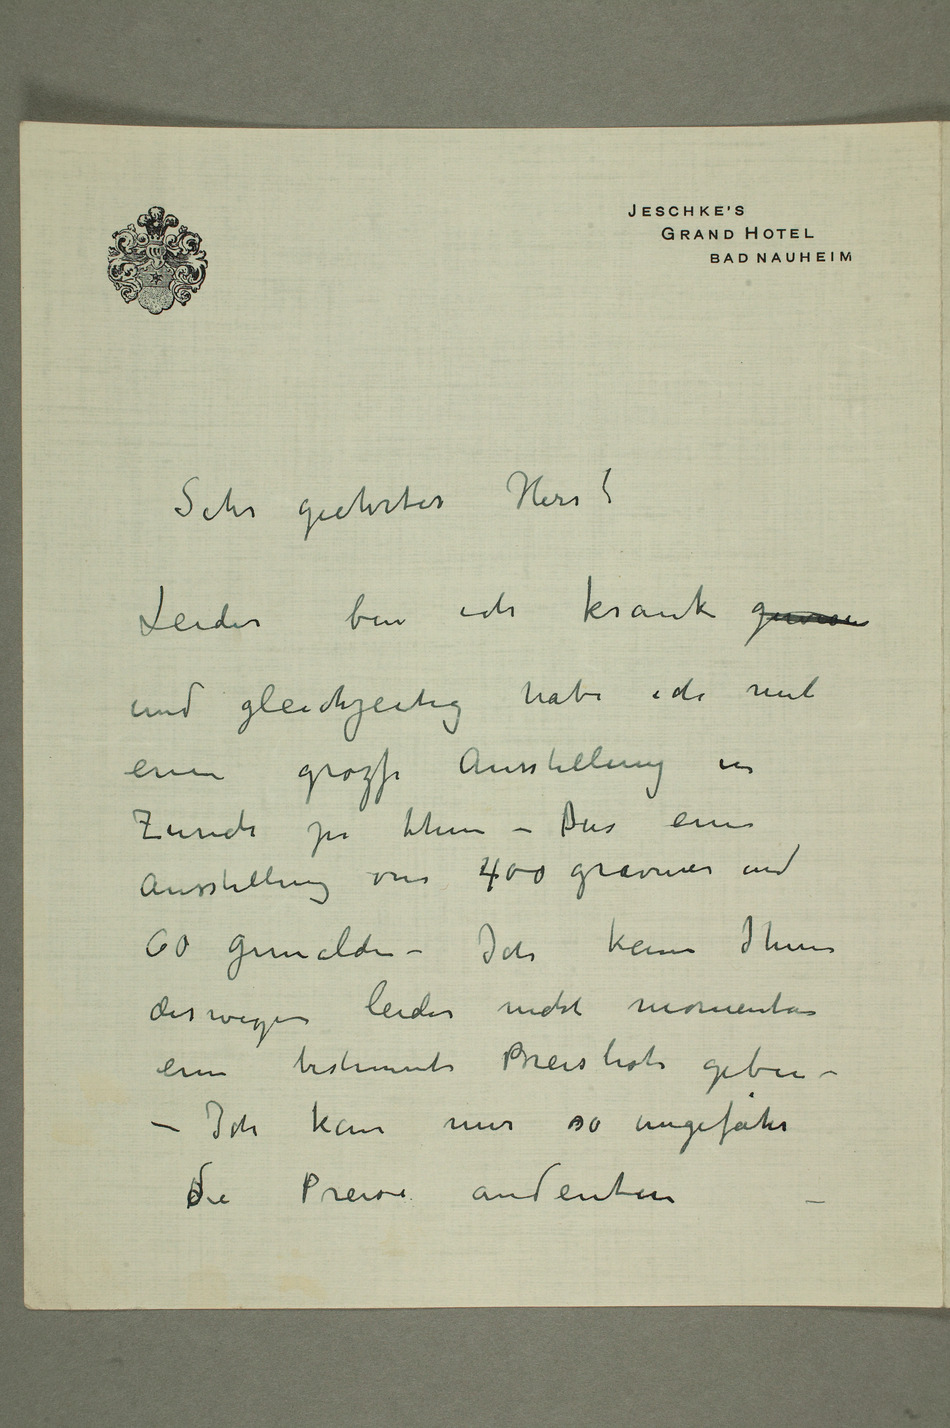 JESCHKE'S
GRAND HOTEL
BAD NAUHEIM
Sehr geehrter Herr!
Leider bin ich krank
und gleichzeitig habe ich mit
einer grozse Ausstellung in
Zurich zu thun – Das eine
Ausstellung von 400 gravures und
60 gemälde – Ich kann Ihnen
deswegen leider nicht momentan
eine bestimmte Preisliste geben –
– Ich kann nur so ungefähr
die Preise andeuten –